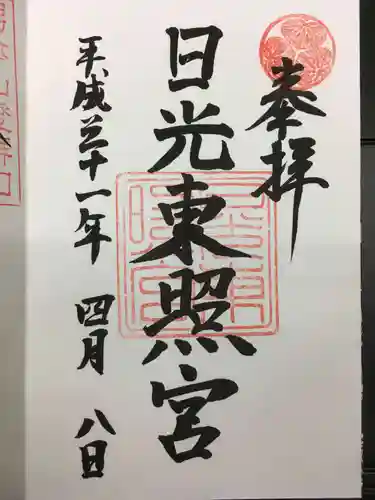 奉拝
日光東照宮
平成三十一年 四月 八日